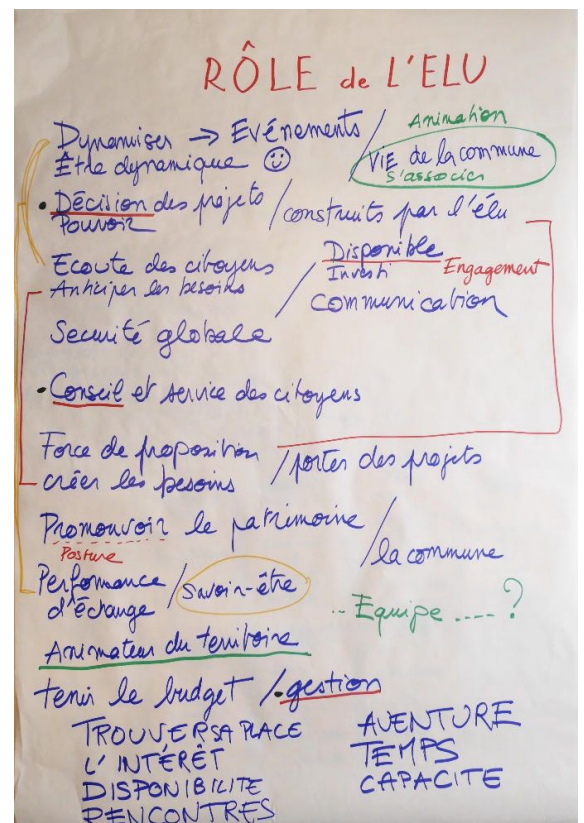 RÔLE de L'ELU
Dynamiser → Evénements / Animation
Être dynamique ☺ Vie de la commune
s'associer
• Décision des projets / construits par l'élu
Pouvoir
Ecoute des citoyens / Disponible
Anticiper les besoins Investi Engagement
communication
Securité globale
• Conseil et service des citoyens
Force de proposition / porter des projets
créer les besoins
Promouvoir le patrimoine / la commune
Posture
Performance / Savoir-être
d'échange
.. Equipe .... ?
Animateur du territoire
tenir le budget / • gestion
TROUVER SA PLACE AVENTURE
L'INTÉRÊT TEMPS
DISPONIBILITE CAPACITE
RENCONTRES